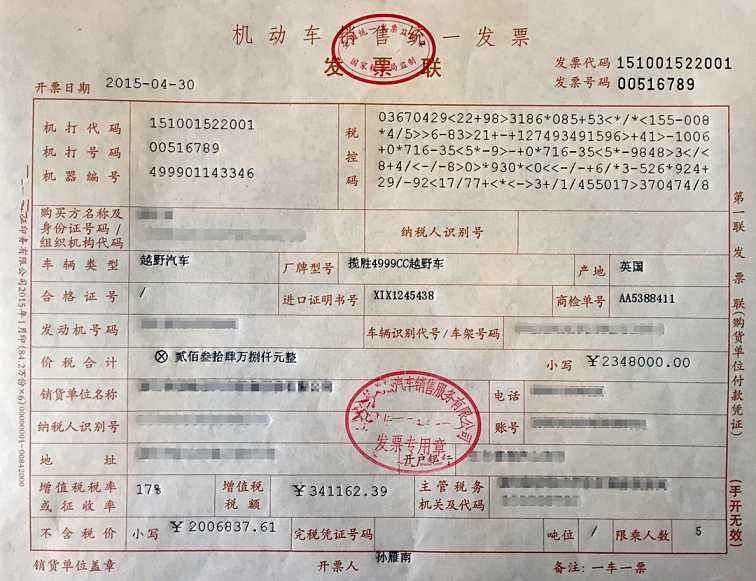 机动车销售统一发票
发票联
发票代码 151001522001
发票号码 00516789
开票日期 2015-04-30
机打代码 151001522001
机打号码 00516789
机器编号 499901143346
税控码
03670429<22+98>3186*085+53<*/*<155-008
*4/5>>6-83>21+-+127493491596>+41>-1006
+0*716-35<5*-9>-+0*716-35<5*-9848>3</<
8+4/<-/-8>0>*930*<0<<-/-+6/*3-526*924+
29/-92<17/77+<*<->3+/1/455017>370474/8
购买方名称及
身份证号码/
组织机构代码
纳税人识别号
车辆类型 越野汽车 厂牌型号 揽胜4999CC越野车 产地 英国
合格证号 / 进口证明书号 XIX1245438 商检单号 AA5388411
发动机号码 车辆识别代号/车架号码
价税合计 ⊗ 贰佰叁拾肆万捌仟元整 小写 ¥2348000.00
销货单位名称 电话
纳税人识别号 账号
地址 开户银行
汽车销售服务有限公司
发票专用章
增值税税率
或征收率
17%
增值税
税额
¥341162.39
主管税务
机关及代码
不含税价 小写 ¥2006837.61 完税凭证号码 吨位 / 限乘人数 5
销货单位盖章 开票人 孙雁南 备注:一车一票
第一联 发票联(购货单位付款凭证)
(手开无效)